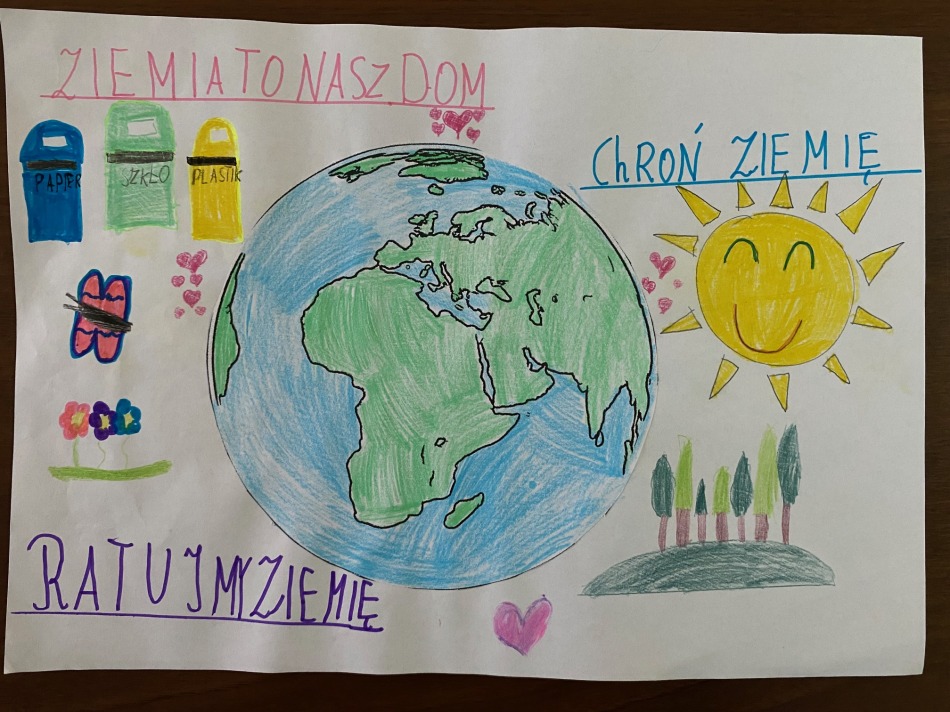 ZIEMIA TO NASZ DOM
ChROŃ ZIEMIĘ
PAPIER
SZKŁO
PLASTIK
RATUJMY ZIEMIĘ